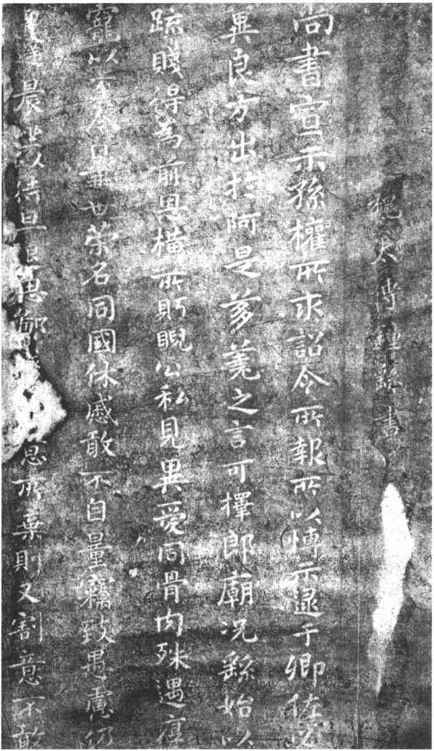 魏太傅鍾繇書
尚書宣示孫權所求詔令所報所以博示逮于卿佐必
冀良方出於阿是芻蕘之言可擇郎廟況繇始以
疏賤得為前恩橫所盼睨公私見異愛同骨肉殊遇厚
寵以至今日再世榮名同國休慼敢不自量竊致愚慮仍
日達晨坐以待旦退思鄙 所棄則又割意不敢